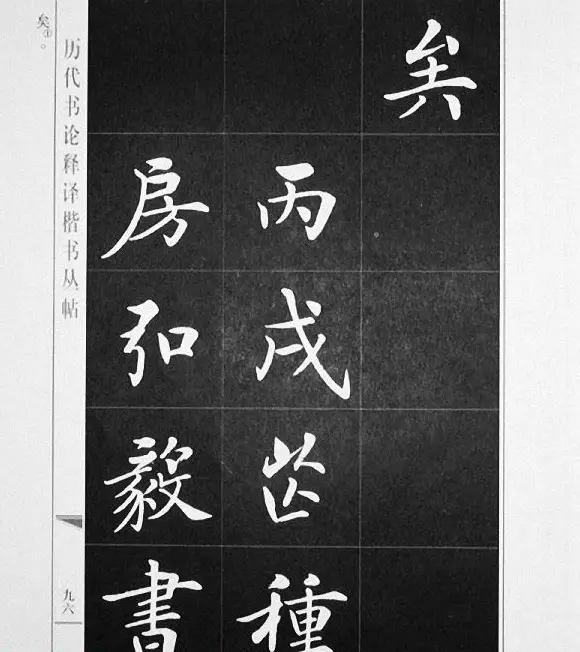 矣
丙戌種
房弘毅書
历代书论释译楷书丛帖
九六
矣①。